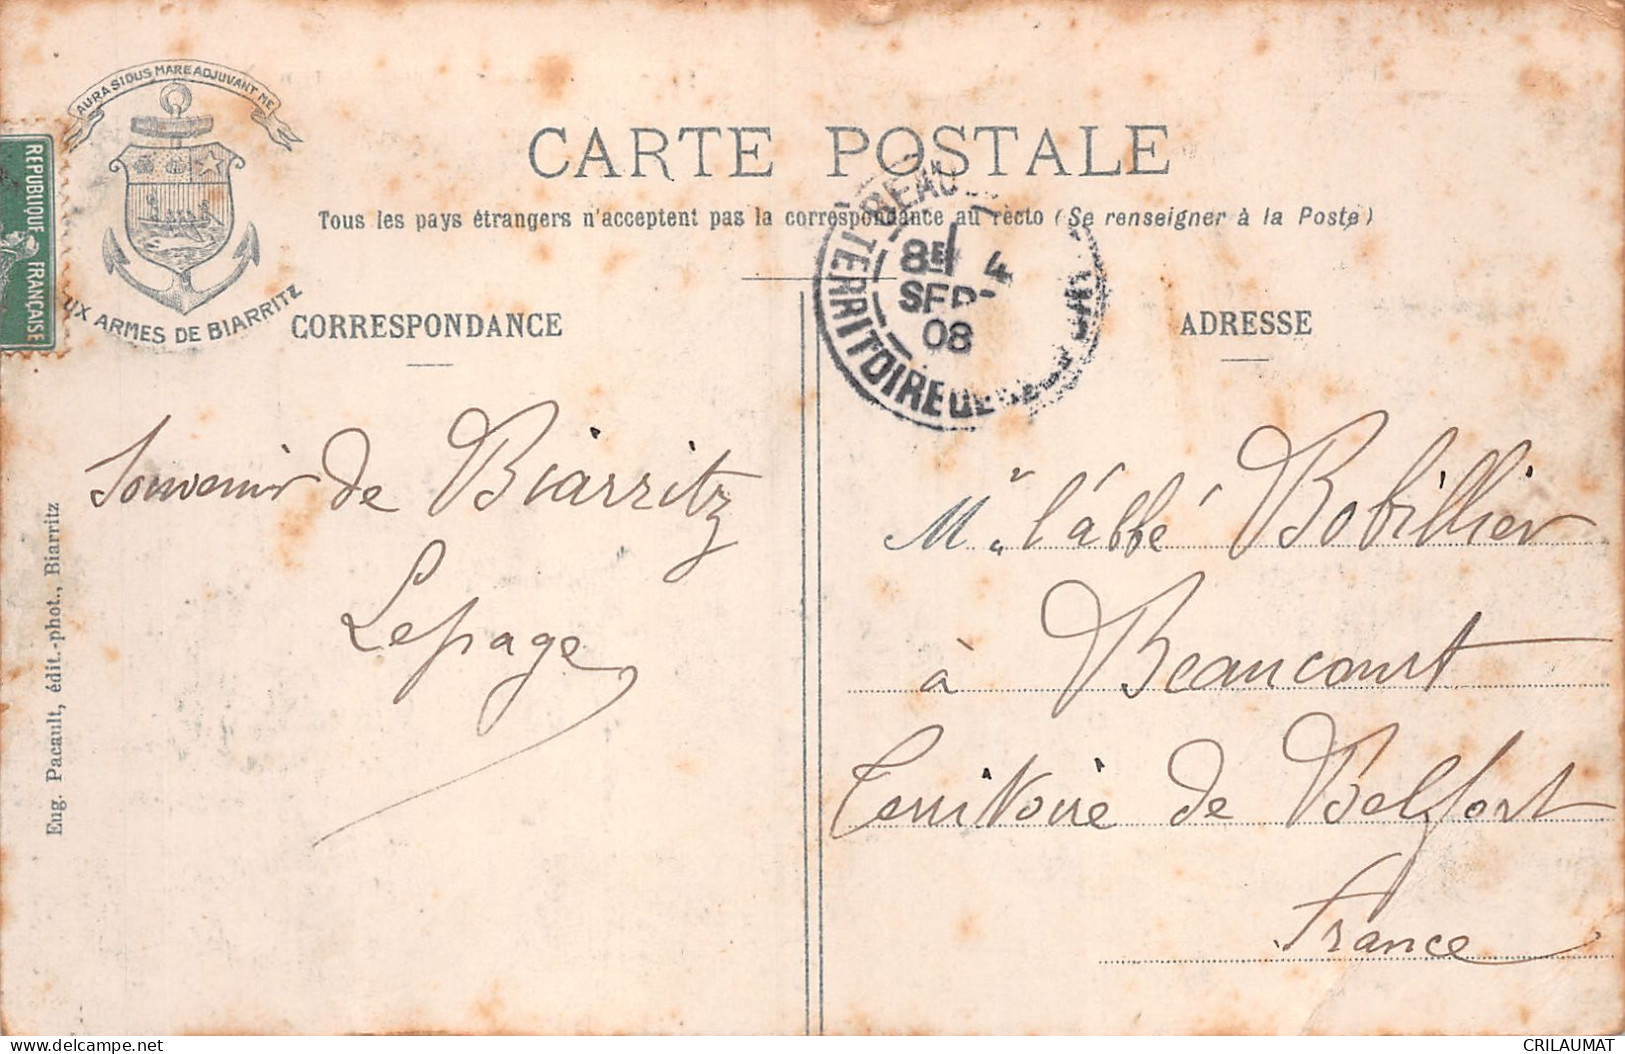 AURA SIDUS MARE ADJUVANT ME
REPUBLIQUE FRANÇAISE
UX ARMES DE BIARRITZ
CARTE POSTALE
Tous les pays étrangers n'acceptent pas la correspondance au recto (Se renseigner à la Poste)
BEAU
8E 4
SEPT
08
TERRITOIRE DE
CORRESPONDANCE
ADRESSE
Souvenir de Biarritz
Lepage
Mr l'abbé Bobillier
à Beaucourt
Territoire de Belfort
France
Eug. Pacault, édit.-phot., Biarritz
delcampe.net
CRILAUMAT